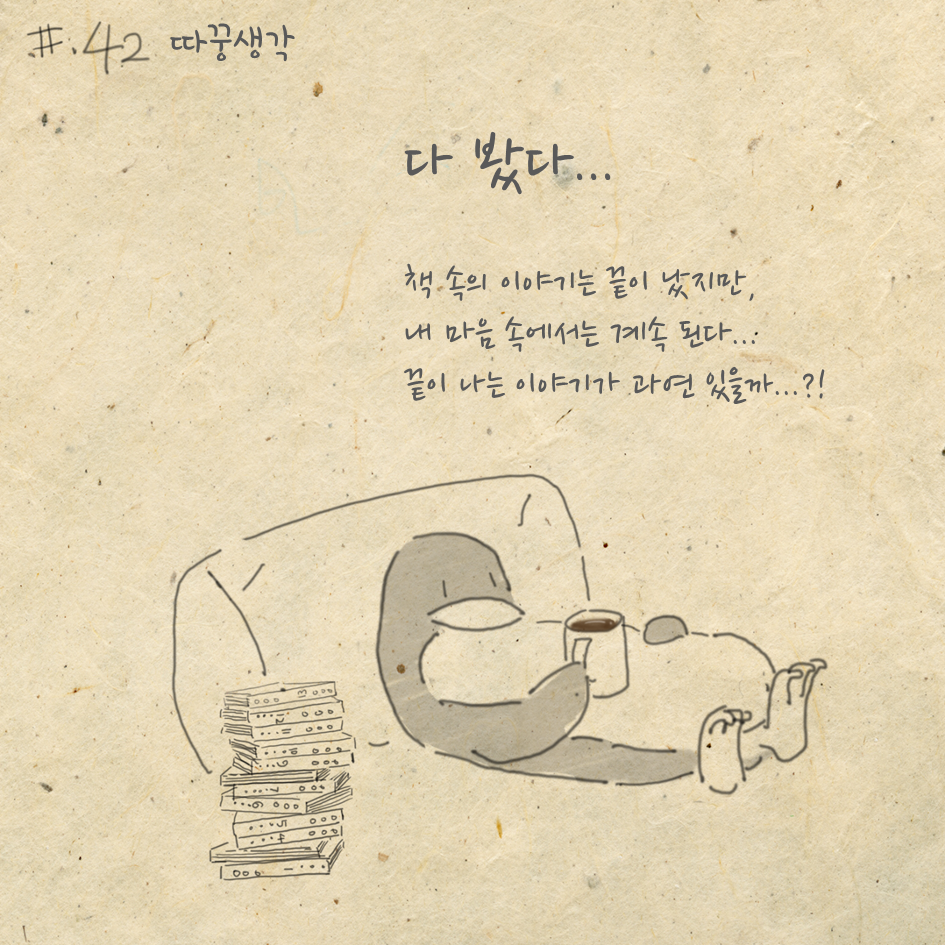 #.42 따꿍생각
다 봤다...
책 속의 이야기는 끝이 났지만,
내 마음 속에서는 계속 된다...
끝이 나는 이야기가 과연 있을까...?!